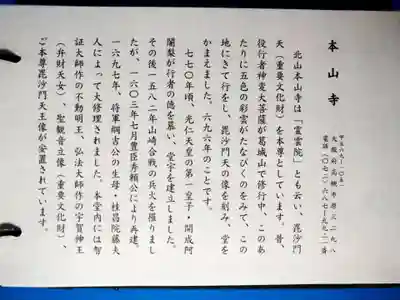 本山寺
〒五六九−一〇五一
大阪府高槻市原三二九八
電話(〇七二)六八七−九九二一番
北山本山寺は「霊雲院」とも云い、毘沙門
天(重要文化財)を本尊としています。昔、
役行者神変大菩薩が葛城山で修行中、このあ
たりに五色の彩雲がたなびくのをみて、この
地にきて行をし、毘沙門天の像を刻み、堂を
かまえました。六九六年のことです。
七七〇年頃、光仁天皇の第一皇子・開成阿
闍梨が行者の徳を慕い、堂宇を建立しました。
その後一五八二年山崎合戦の兵火を罹りまし
たが、一六〇三年七月豊臣秀頼公により再建。
一六九七年、将軍綱吉公の生母・桂昌院藤夫
人によって大修理されました。本堂内には智
証大師作の不動明王、弘法大師作の宇賀神王
(弁財天女)、聖観音立像(重要文化財)、
ご本尊毘沙門天王像が安置されています。